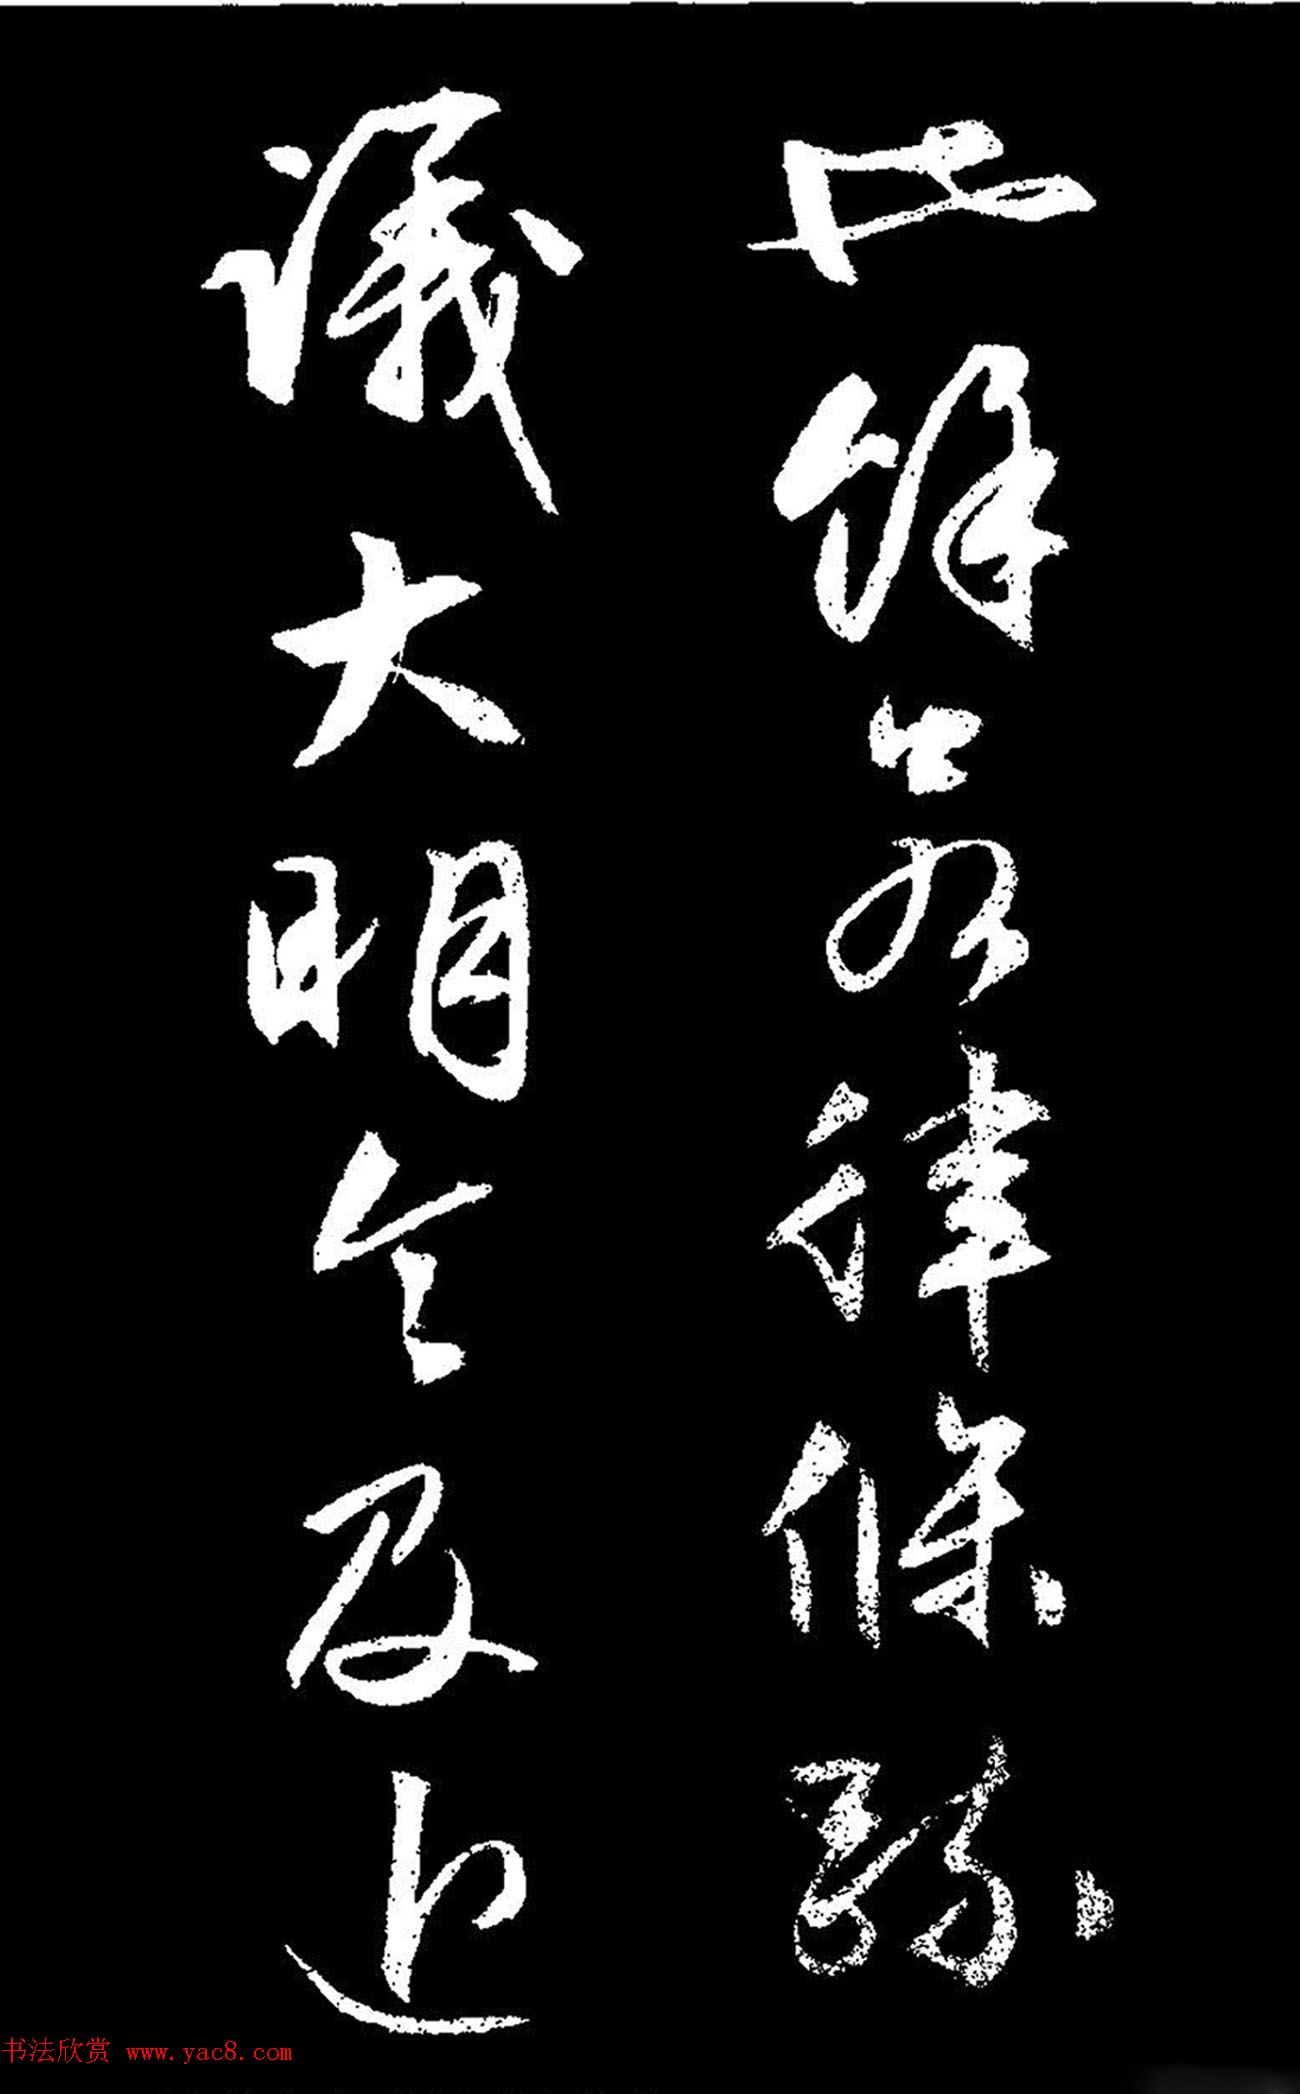 此餘皆為律條疏
議大明令及近
书法欣赏 www.yac8.com